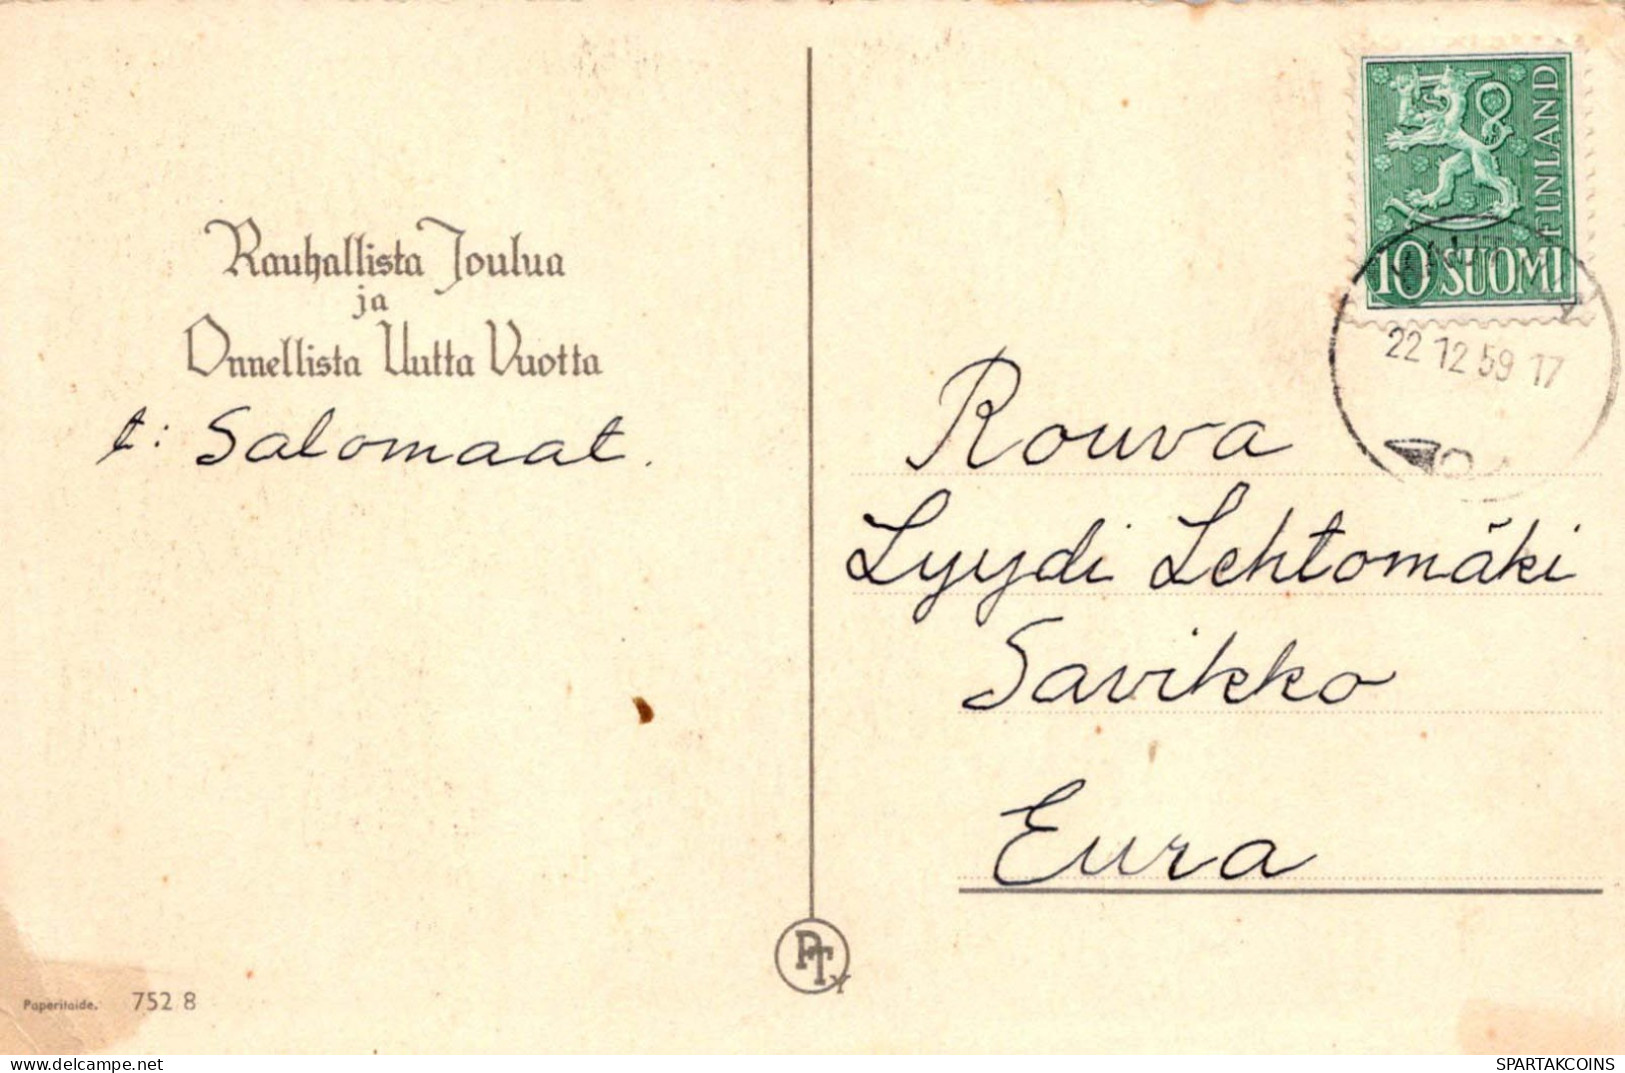 Rauhallista Joulua
ja
Onnellista Uutta Vuotta
t: Salomaat.
FINLAND
10 SUOMI
22 12 59 17
Rouva
Lyydi Lehtomäki
Savikko
Eura
PTY
Paperitaide. 752 8
delcampe.net
SPARTAKCOINS